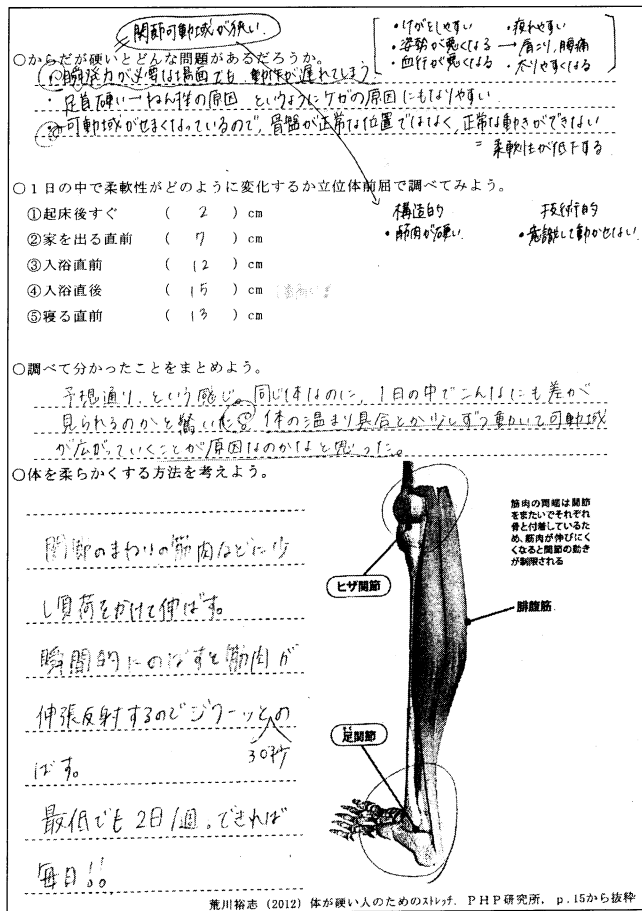 関節可動域が狭い
・けがをしやすい ・疲れやすい
・姿勢が悪くなる → 肩こり、腰痛
・血行が悪くなる ・太りやすくなる
○からだが硬いとどんな問題があるだろうか。
瞬発力が必要な場面でも動作が遅れてしまう
・足首硬い→ねんざの原因 というようにケガの原因にもなりやすい
可動域がせまくなっているので、骨盤が正常な位置ではなく、正常な動きができない
= 柔軟性が低下する
○1日の中で柔軟性がどのように変化するか立位体前屈で調べてみよう。
①起床後すぐ ( 2 ) cm
②家を出る直前 ( 7 ) cm
③入浴直前 ( 12 ) cm
④入浴直後 ( 15 ) cm
⑤寝る直前 ( 13 ) cm
構造的 技術的
・筋肉が硬い ・意識して動かせない
○調べて分かったことをまとめよう。
予想通り、という感じ。同じ体なのに、1日の中でこんなにも差が
見られるのかと驚いた。体の温まり具合とか少しずつ動いて可動域
が広がっていくことが原因なのかなと思った。
○体を柔らかくする方法を考えよう。
関節のまわりの筋肉などに少
し負荷をかけて伸ばす。
瞬間的にのばすと筋肉が
伸張反射するのでジワーッとの
30秒
ばす。
最低でも2日/週。できれば
毎日!!
筋肉の両端は関節
をまたいでそれぞれ
骨と付着しているた
め、筋肉が伸びにく
くなると関節の動き
が制限される
ヒザ関節
腓腹筋
足関節
荒川裕志 (2012) 体が硬い人のためのストレッチ. PHP研究所, p.15から抜粋